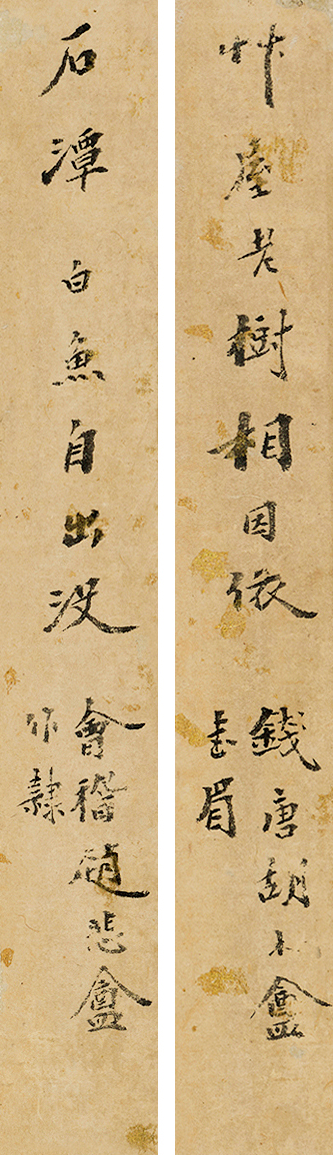 艸屋老樹相因依
錢唐胡小盦
眉
石潭白魚自出没
會稽趙悲盦
作隸